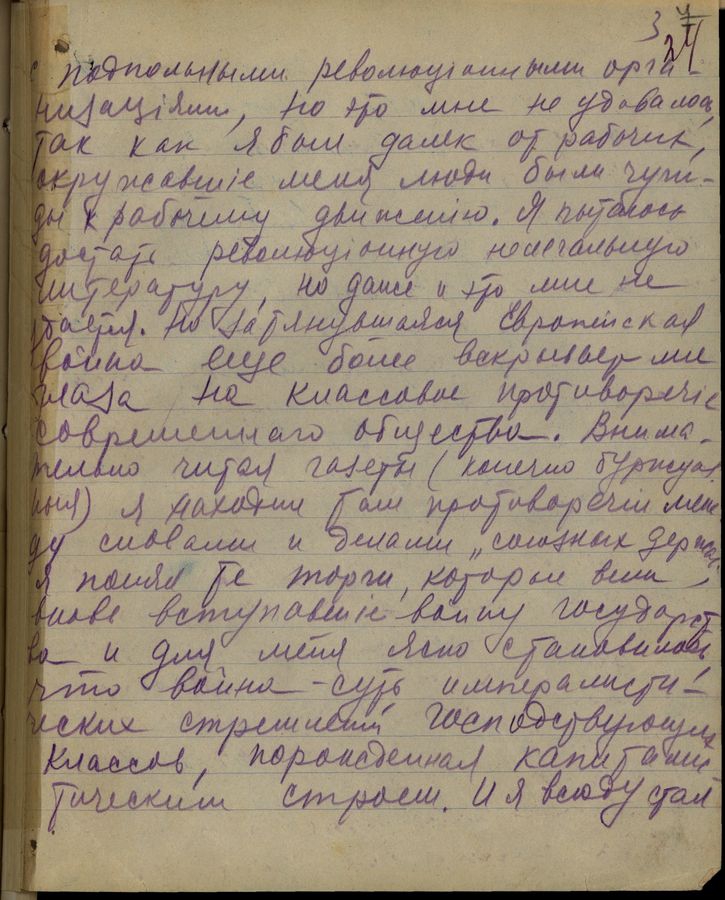 3
24
с подпольными революціонными орга-
низаціями, но это мне не удавалось,
так как я был далек от рабочих,
окружавшіе меня люди были чуж-
ды к рабочему движенію. Я пытаюсь
достать революціонную нелегальную
литературу, но даже и это мне не
удается. Но затянувшаяся Европейская
война еще более вскрывает мне
глаза на классовое противоречіе
современнаго общества. Внима-
тельно читая газеты (конечно буржуаз
ныя) я находил там противоречіи меж
ду словами и делами „союзных держав.
Я понял те торги, которые вели
вновь вступавшіе войну государст
ва и для меня ясно становилось
что война - суть империалисти-
ческих стремлений господствующих
классов, порожденная капиталис
тическим строем. И я всюду стал